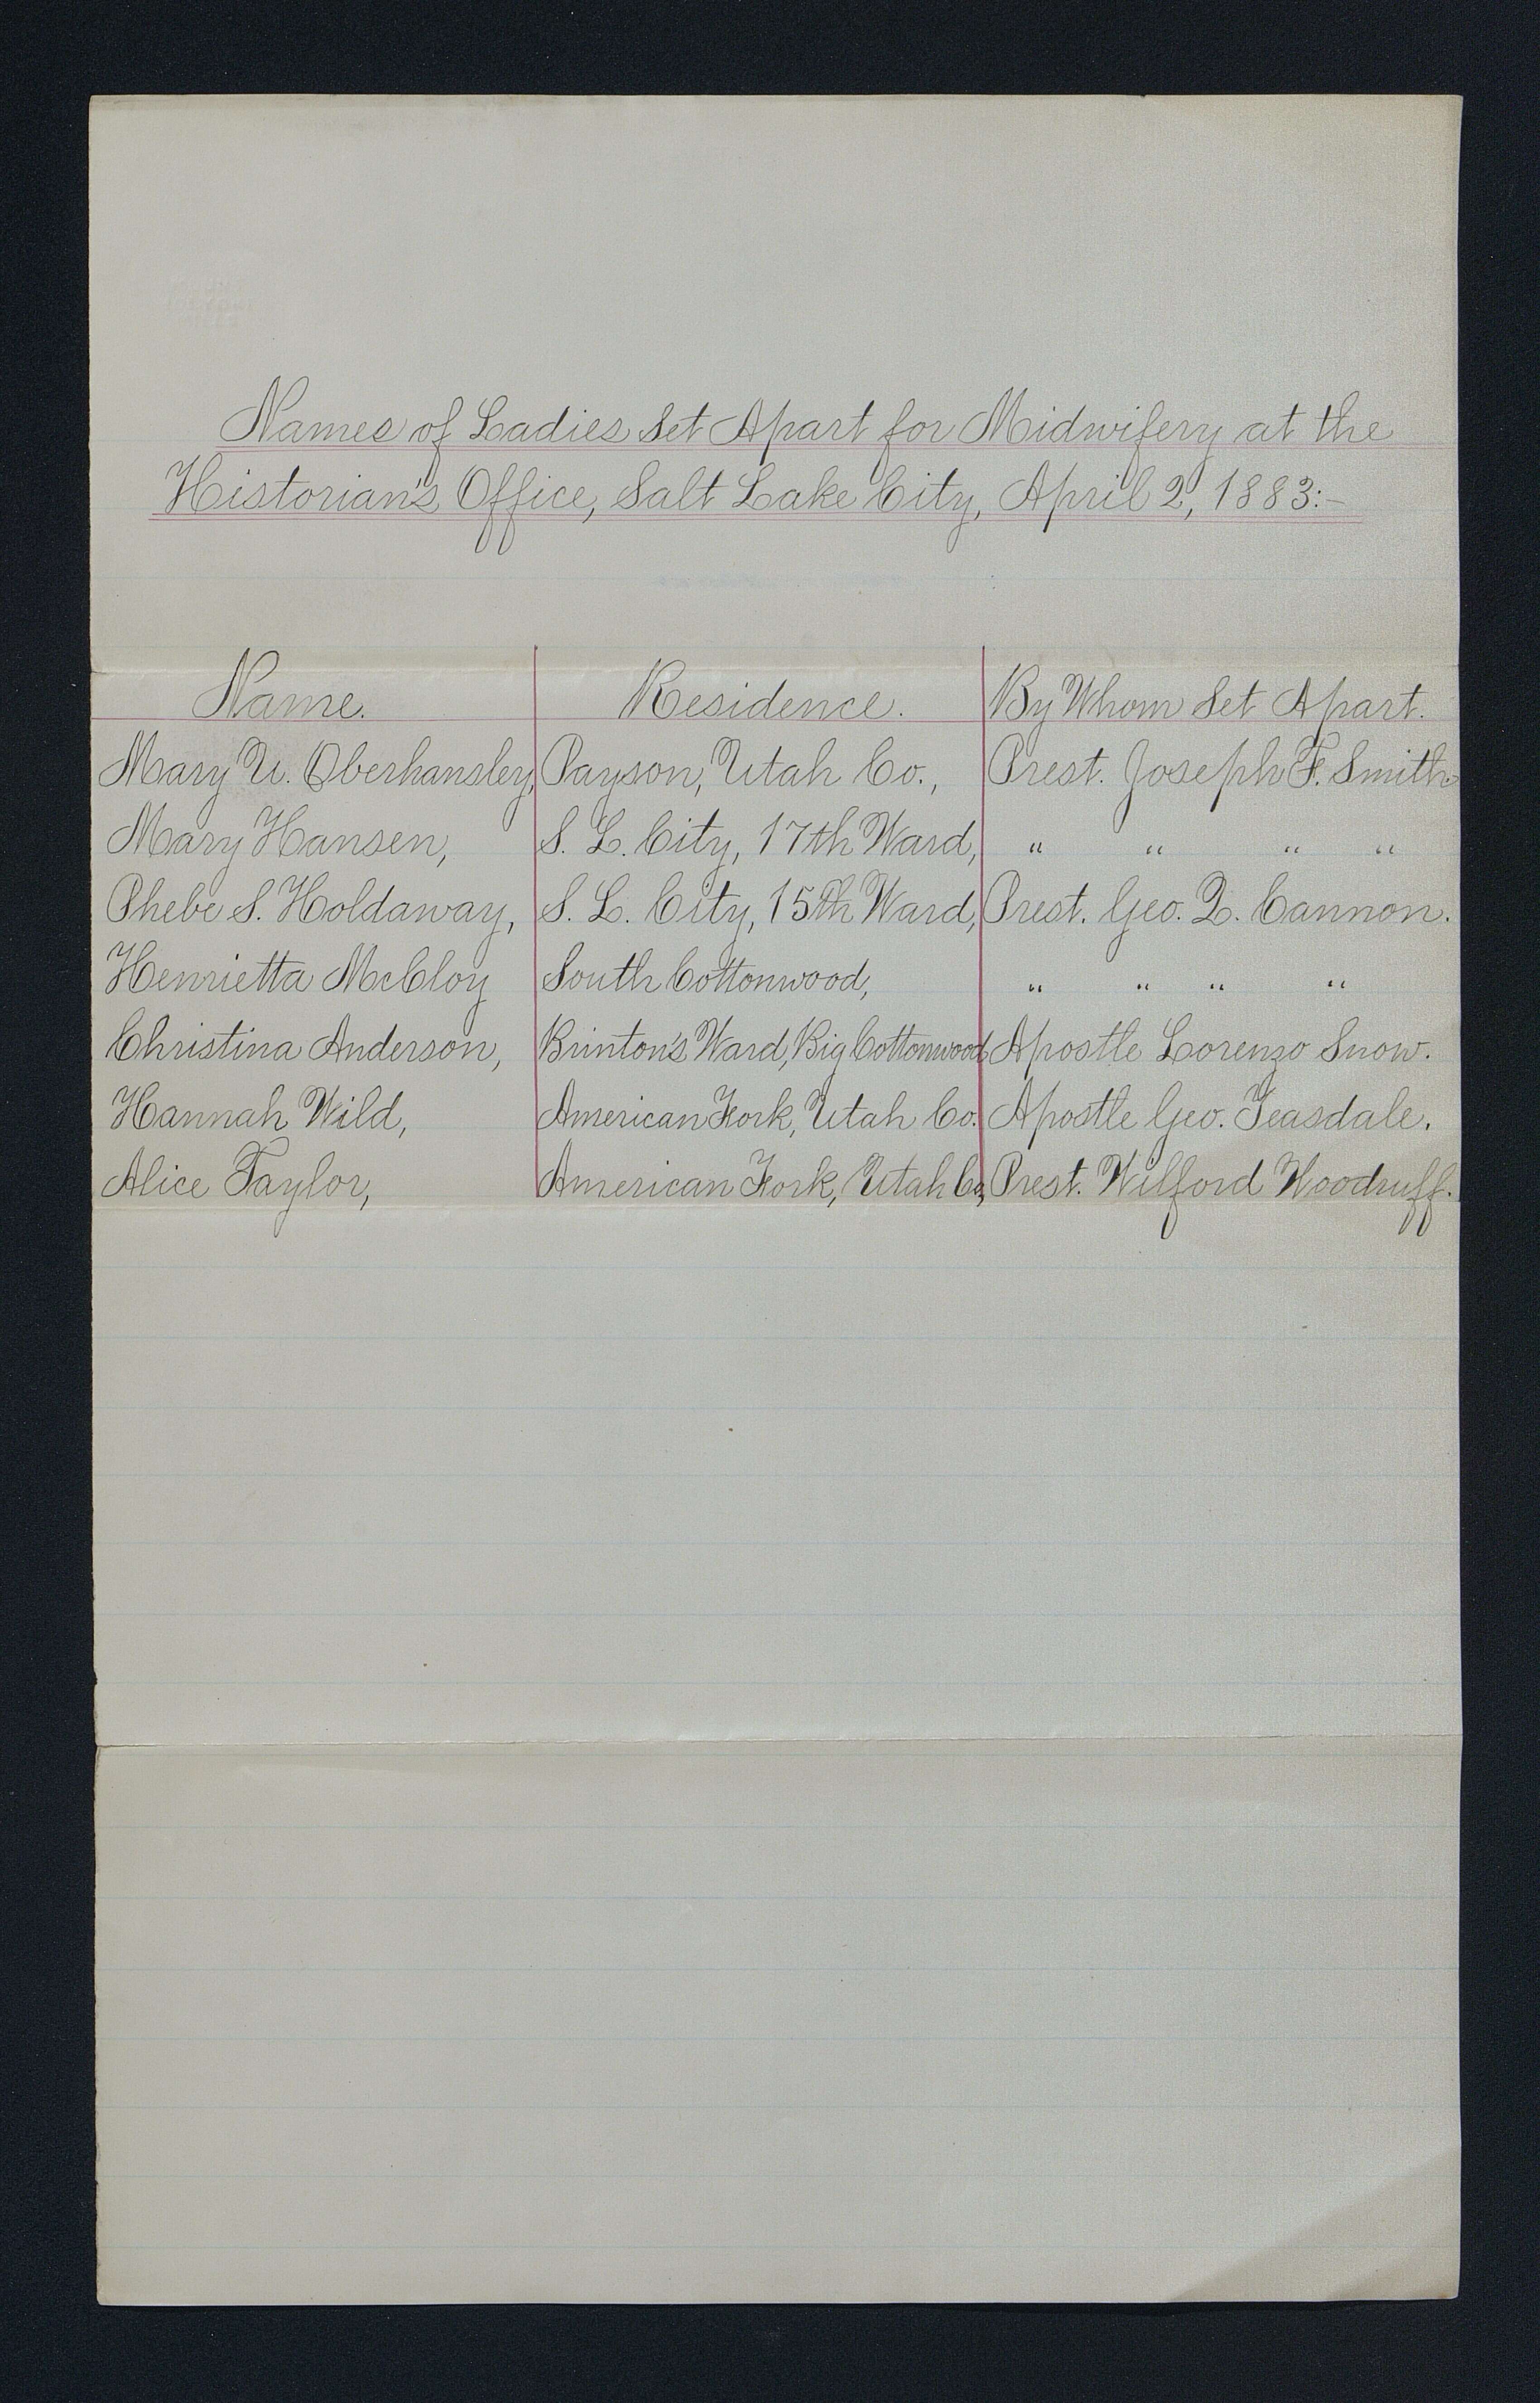 Names of Ladies Set Apart for Midwifery at the
Historian's Office, Salt Lake City, April 2, 1883:-
Name. Residence. By Whom Set Apart.
Mary U. Oberhansley, Payson, Utah Co., Prest. Joseph F. Smith
Mary Hansen, S. L. City, 17th Ward, " " " "
Phebe S. Holdaway, S. L. City, 15th Ward, Prest. Geo. Q. Cannon.
Henrietta McCloy South Cottonwood, " " " "
Christina Anderson, Brinton's Ward, Big Cottonwood, Apostle Lorenzo Snow.
Hannah Wild, American Fork, Utah Co. Apostle Geo. Teasdale.
Alice Taylor, American Fork, Utah Co, Prest. Wilford Woodruff.